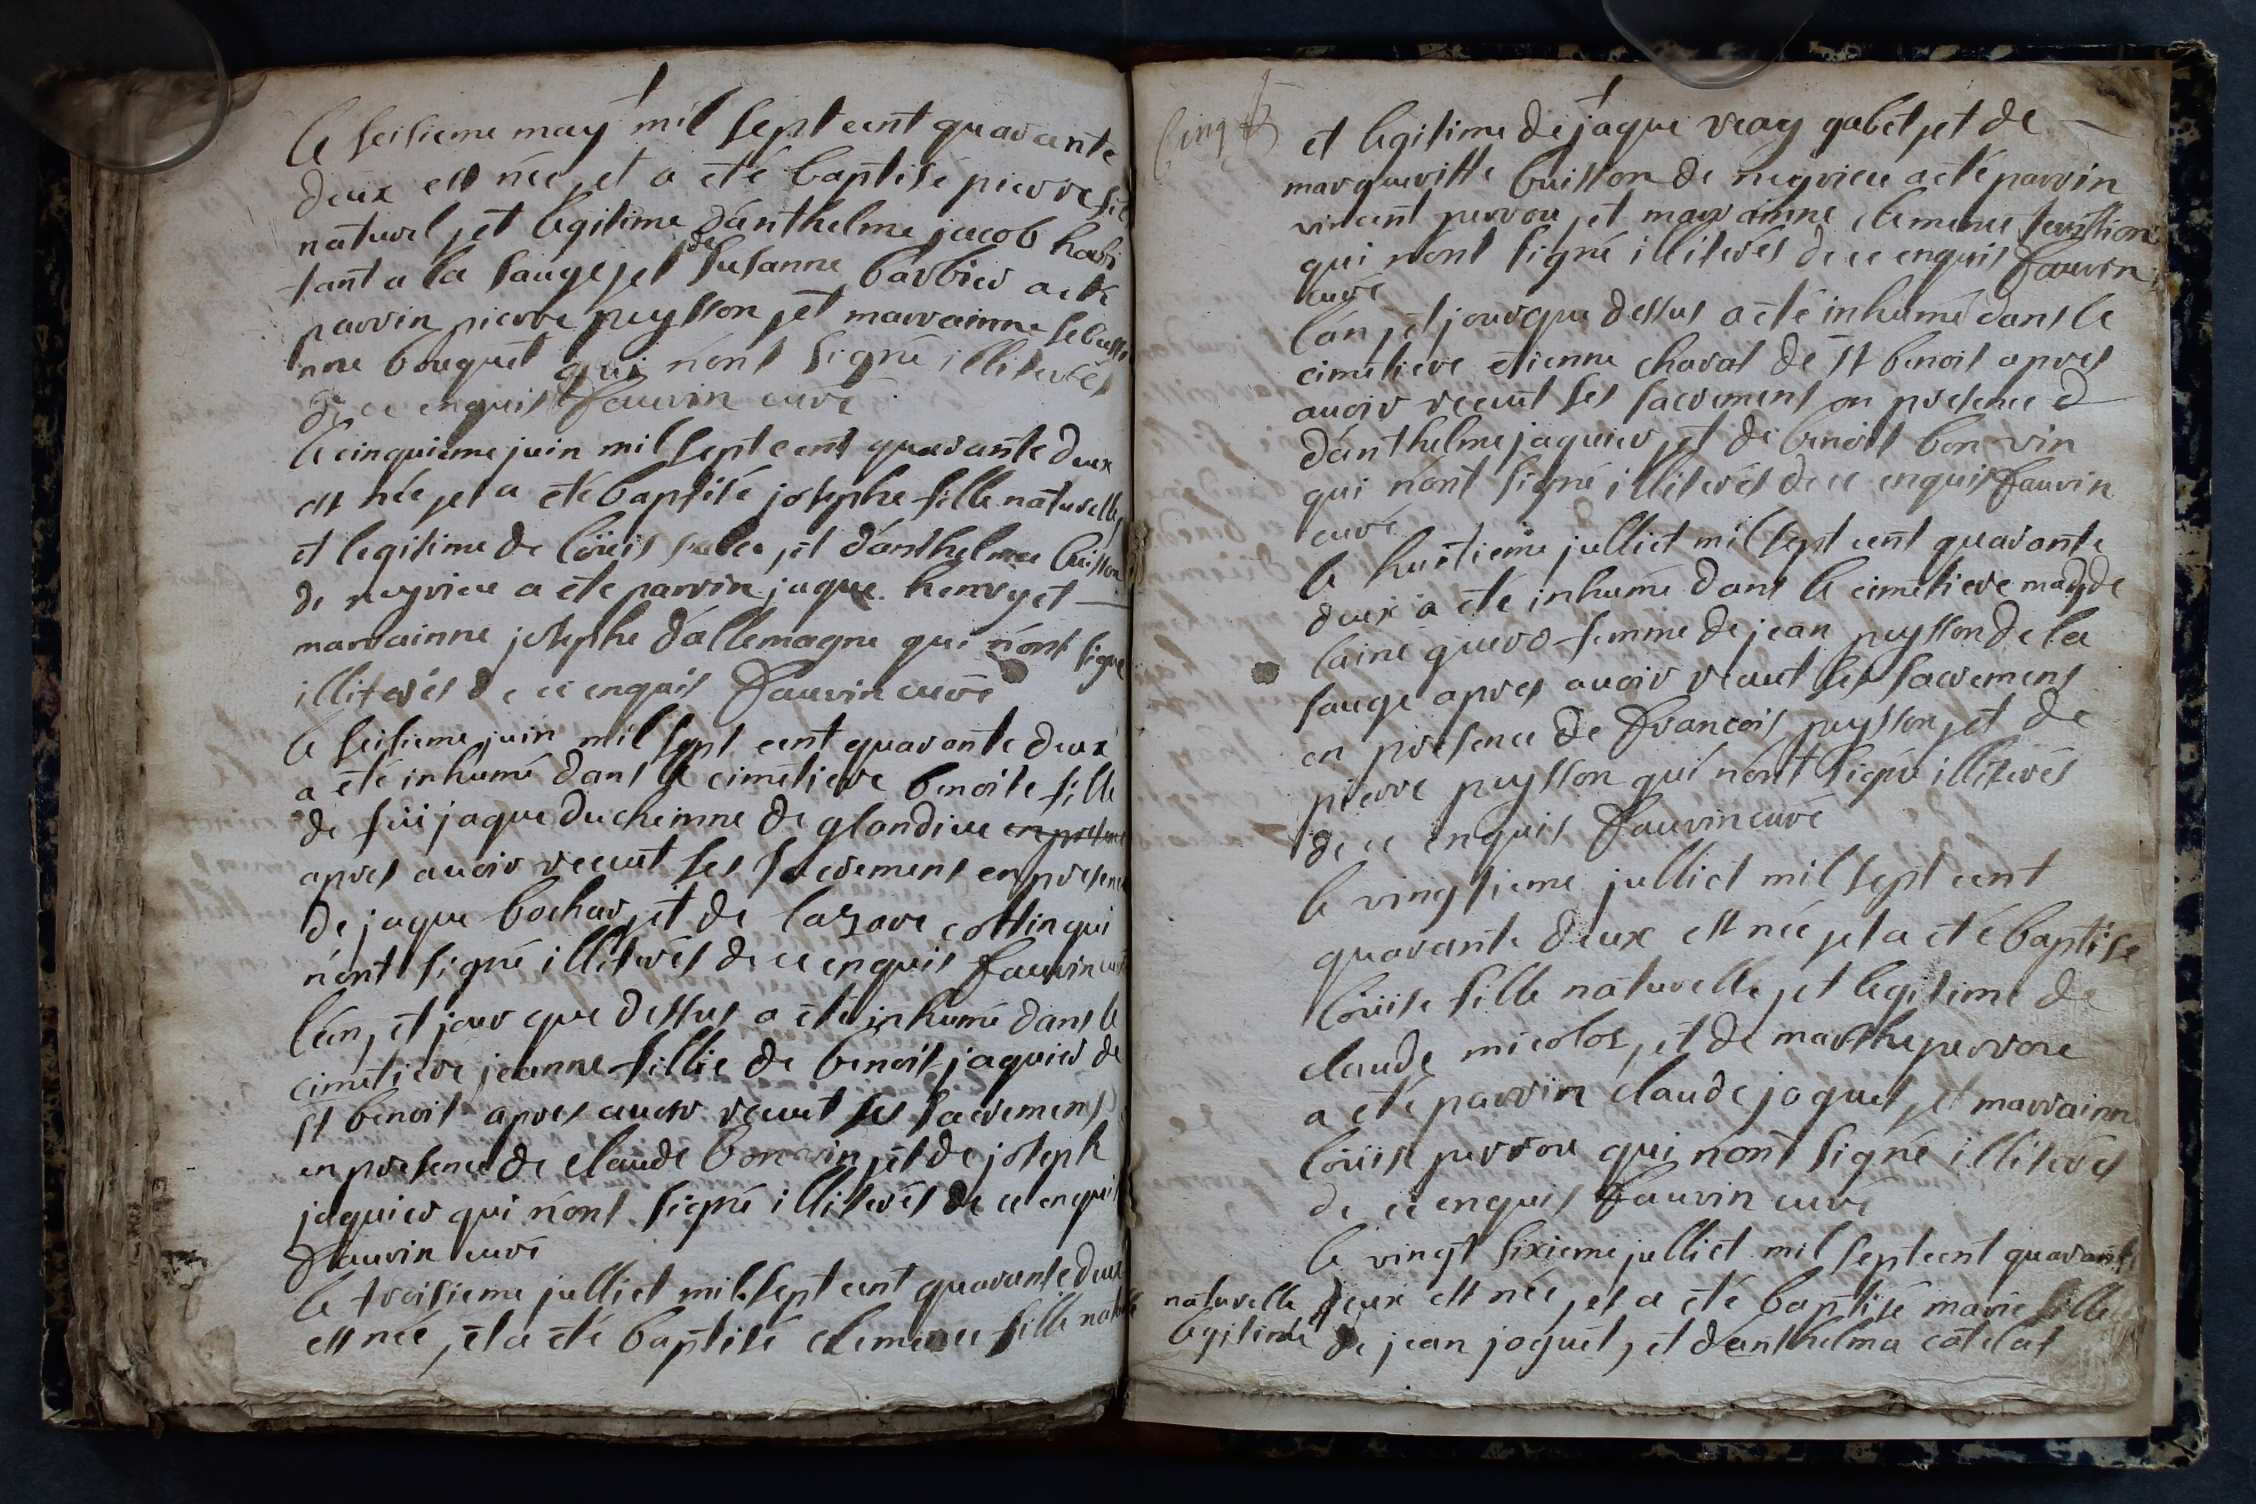 le seisieme may mil sept cent quarante
deux est née, et a eté baptisé pierre fils
naturel, et legitime d'anthelme jacob habi
tant a la sauge, et de susanne barbier a eté
parrin pierre peysson, et marrainne sebastie
nne bouquet qui nont signé illiterés
de ce enquis fauvin curé
le cinquieme juin mil sept cent quarante deux
est née, et a eté baptisé josephe fille naturelle,
et legitime de loüis, et d'anthelmee buisson
de neyrieu a eté parrin jaque henry et
marrainne josephe d'allemagne qui nont signé
illiterés de ce enquis fauvin curé
le seisieme juin mil sept cent quarante deux
a été inhumé dans le cimetiere benoite fille
de fûi jaque duchemne de glandieu en presence
apres avoir receut ses sacrement en presence
de jaque bochar, et de lazare cottin qui
n'ont signé illiterés de ce enquis fauvin curé
l'an, et jour que dessus a eté inhumé dans le
cimetiere jeanne fillie de benoit jaquier de
st benoit apres avoir receut ses sacremens
en presence de claude bonvin, et de joseph
jaquier qui n'ont signé illiterés de ce enquis
fauvin curé
le troisieme julliet mil sept cent quarante deux
est née, et a eté baptisé clemence fille naturelle
cinq
et legitime de jaque vray gabet, et de
margueritte buisson de neyrieu a eté parrin
vincent perron, et marrainne clemence
qui nont signé illiterés de ce enquis fauvin
curé
l'an, et jour que dessus a eté inhumé dans le
cimetiere etienne chavat de st benoit apres
avoir receut ses sacrement on presence d
d'anthelme jaquier, et de benoist bon vin
qui n'ont signé illiterés de ce enquis fauvin
curé
le huitieme julliet mil sept cent quarante
deux a eté inhumé dans le cimetiere magde
laine femme de jean peysson de la
sauge apres avoir receut ses sacremens
en presence de francois peysson, et de
pierre peysson qui nont signé illiterés
de ce enquis fauvin curé
le vingtieme julliet mil sept cent
quarante deux est née, et a eté baptisé
loüise fille naturelle, et legitime de
claude micolos, et de marthe perrone
a eté parrin claude joquet, et marrainne
loüise perrone qui nont signé illiterés
de ce enquis fauvin curé
le vingt sixieme julliet mil sept cent quarante
deux est née, et a eté baptisé marie fille
naturelle
legitime
de jean joquet, et d'anthelma catelat